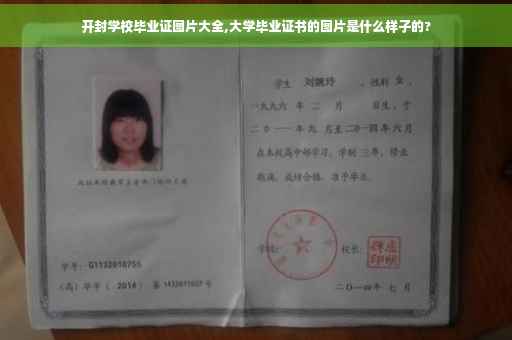 开封学校毕业证图片大全,大学毕业证书的图片是什么样子的?
学生 刘婉玲 ,性别 女 ,
一九九六 年 二 月 日生,于
二〇一一年九 月至二〇一四年六月
在本校高中部学习,学制 三年,修业
期满,成绩合格,准予毕业。
学号: G1132010755
(高)毕字( 2014 )第 1432011027 号
学校:
校长:
二〇一四年 七 月